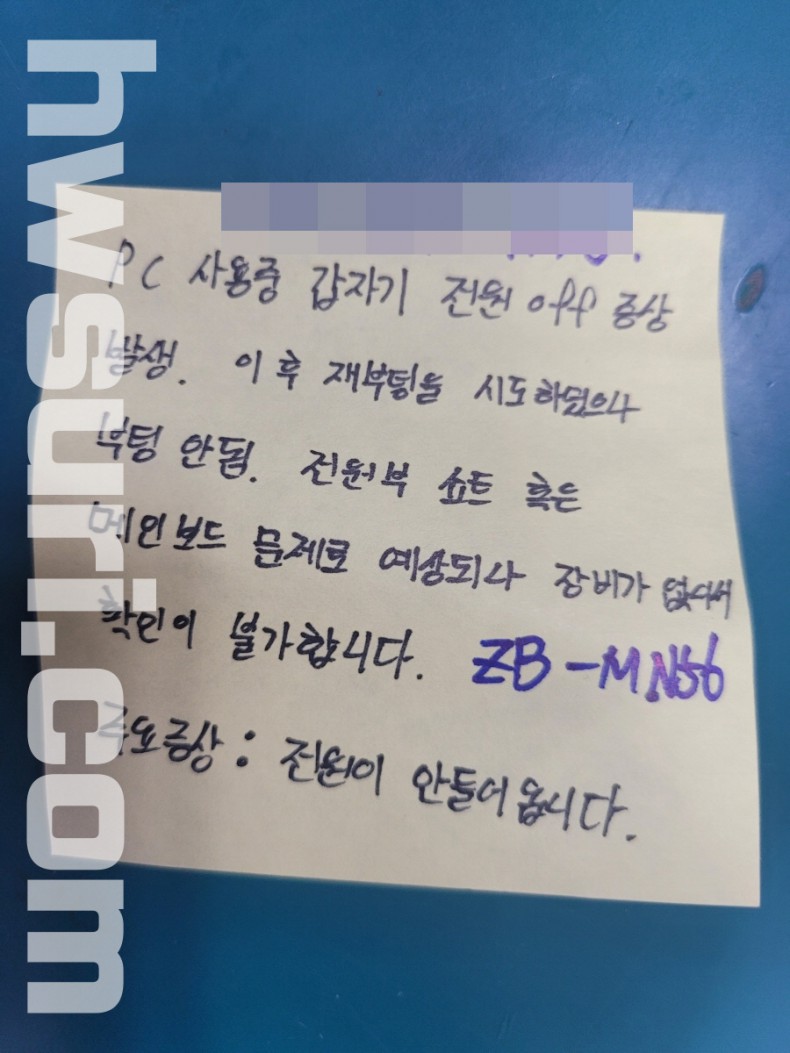 hwsuri.com
PC 사용중 갑자기 전원 off 증상
발생. 이후 재부팅을 시도하였으나
부팅 안됨. 전원부 쇼트 혹은
메인보드 문제로 예상되나 장비가 없어서
확인이 불가합니다. ZB-MN56
주요증상: 전원이 안들어옵니다.